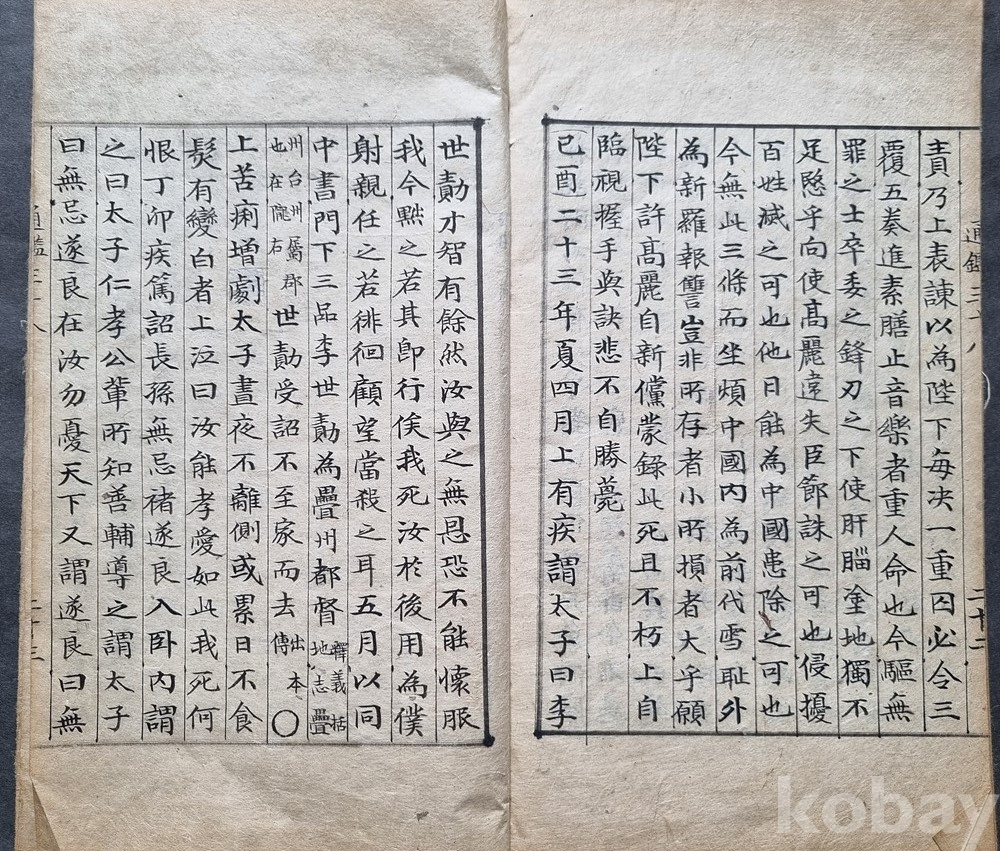 責乃上表諫以為陛下每决一重囚必令三
覆五奏進素膳止音樂者重人命也今驅無
罪之士卒委之鋒刃之下使肝腦塗地獨不
足愍乎向使髙麗違失臣節誅之可也侵擾
百姓滅之可也他日能為中國患除之可也
今無此三條而坐煩中國內為前代雪耻外
為新羅報讐豈非所存者小所損者大乎願
陛下許髙麗自新儻蒙録此死且不朽上自
臨視握手與訣悲不自勝薨
己酉二十三年夏四月上有疾謂太子曰李
世勣才智有餘然汝與之無恩恐不能懷服
我今黜之若其卽行俟我死汝於後用為僕
射親任之若徘徊顧望當殺之耳五月以同
中書門下三品李世勣為疊州都督釋義括地志疊
州台州屬郡也在隴右世勣受詔不至家而去出本傳〇
上苦痢增劇太子晝夜不離側或累日不食
髮有變白者上泣曰汝能孝愛如此我死何
恨丁卯疾篤詔長孫無忌褚遂良入卧內謂
之曰太子仁孝公輩所知善輔導之謂太子
曰無忌遂良在汝勿憂天下又謂遂良曰無
二十三
kobay